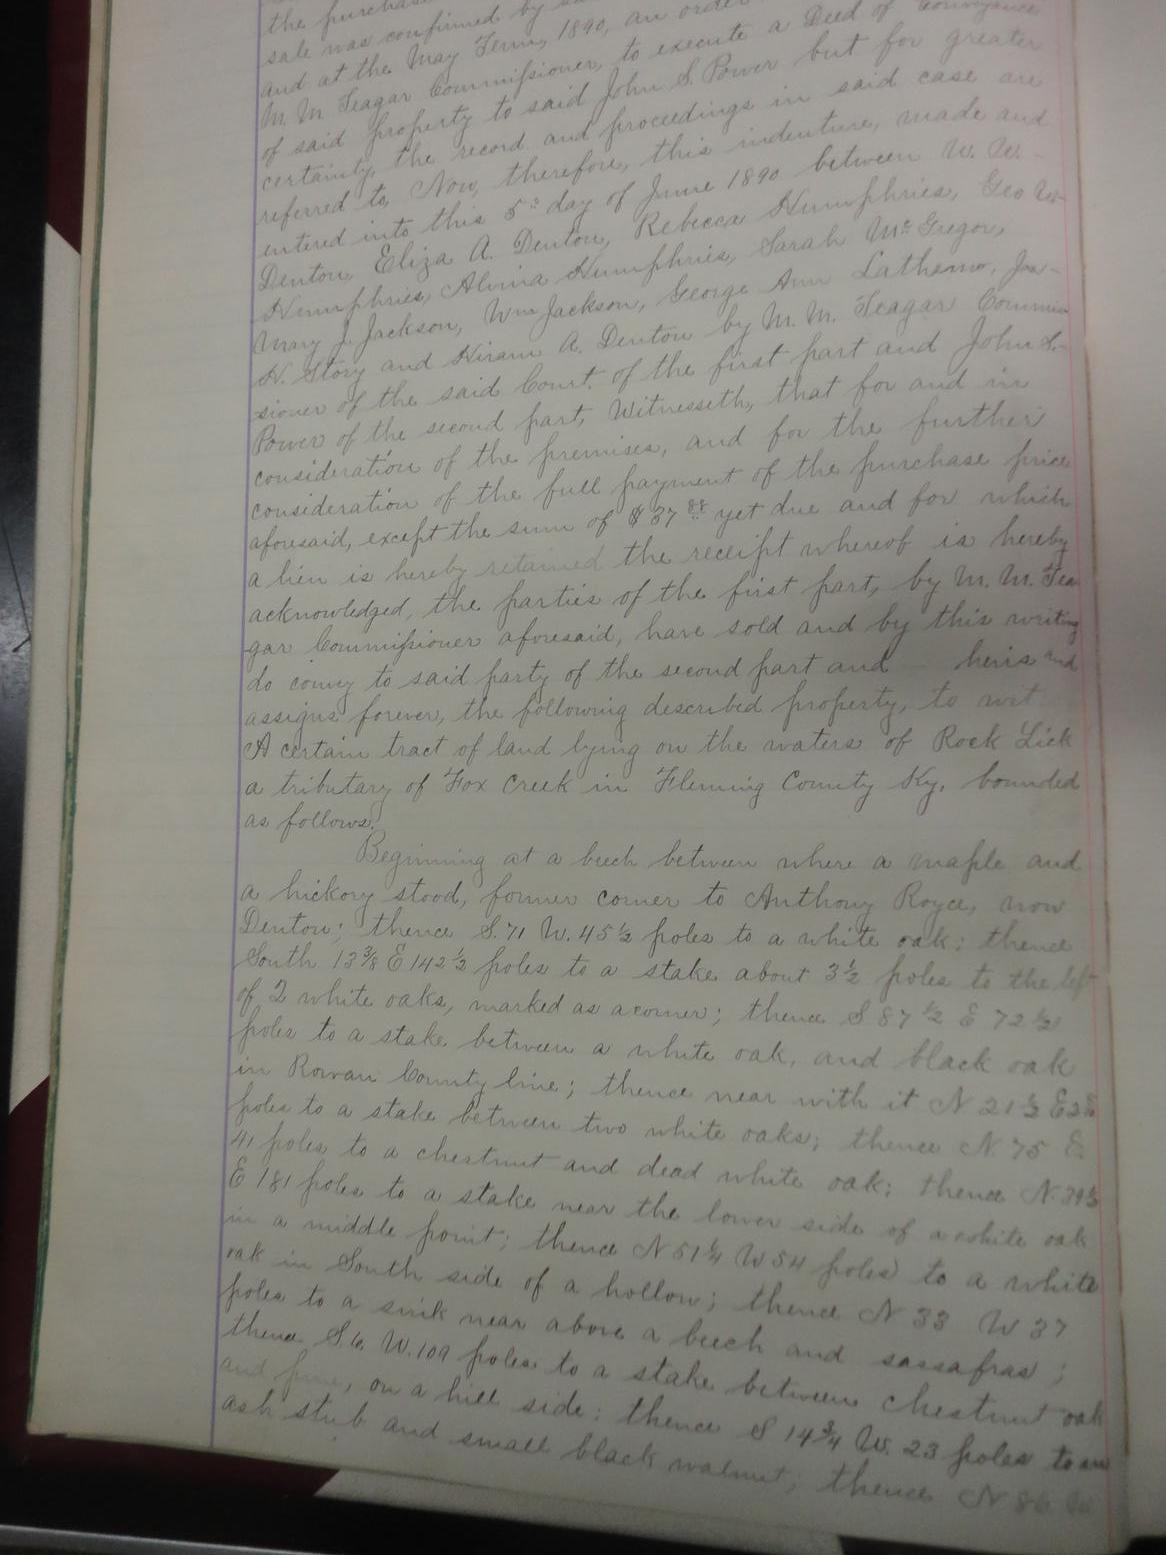 the purchase
sale was confirmed by
and at the May Term, 1890, an order
M. M. Teagar Commissioner, to execute a Deed of Conveyance
of said property to said John S. Power but for greater
certainty, the record and proceedings in said case are
referred to, Now, therefore, this indenture, made and
entered into this 5th day of June 1890 between W. W.
Denton, Eliza A. Denton, Rebecca Humphries, Geo W.
Humphries, Alvina Humphries, Sarah McGregor,
Mary J. Jackson, Wm Jackson, George Ann Lathem, Jas
N. Story and Hiram A. Denton by M. M. Teagar Commis
sioner of the said Court. of the first part and John S.
Power of the second part, Witnesseth, that for and in
consideration of the premises, and for the further
consideration of the full payment of the purchase price
aforesaid, except the sum of $37 88 yet due and for which
a lien is hereby retained the receipt whereof is hereby
acknowledged, the parties of the first part, by M. M. Tea
gar Commissioner aforesaid, have sold and by this writing
do convey to said party of the second part and heirs and
assigns forever, the following described property, to wit
A certain tract of land lying on the waters of Rock Lick
a tributary of Fox Creek in Fleming County Ky, bounded
as follows:
Beginning at a beech between where a maple and
a hickory stood, former corner to Anthony Royce, now
Denton; thence S. 71 W. 45½ poles to a white oak; thence
South 13⅜ E 142½ poles to a stake about 3½ poles to the left
of 2 white oaks, marked as a corner; thence S 87½ E 72½
poles to a stake between a white oak, and black oak
in Rowan County line; thence near with it N 21½ E
poles to a stake between two white oaks; thence N. 75 E.
41 poles to a chestnut and dead white oak; thence N. 39½
E 181 poles to a stake near the lower side of a white oak
in a middle point; thence N 51¼ W 54 poles to a white
oak in South side of a hollow; thence N 33 W 37
poles to a sink near above a beech and sassafras;
thence S. 6. W. 109 poles to a stake between chestnut oak
and pine, on a hill side; thence S 14¾ W. 23 poles to an
ash stub and small black walnut; thence N 86 W